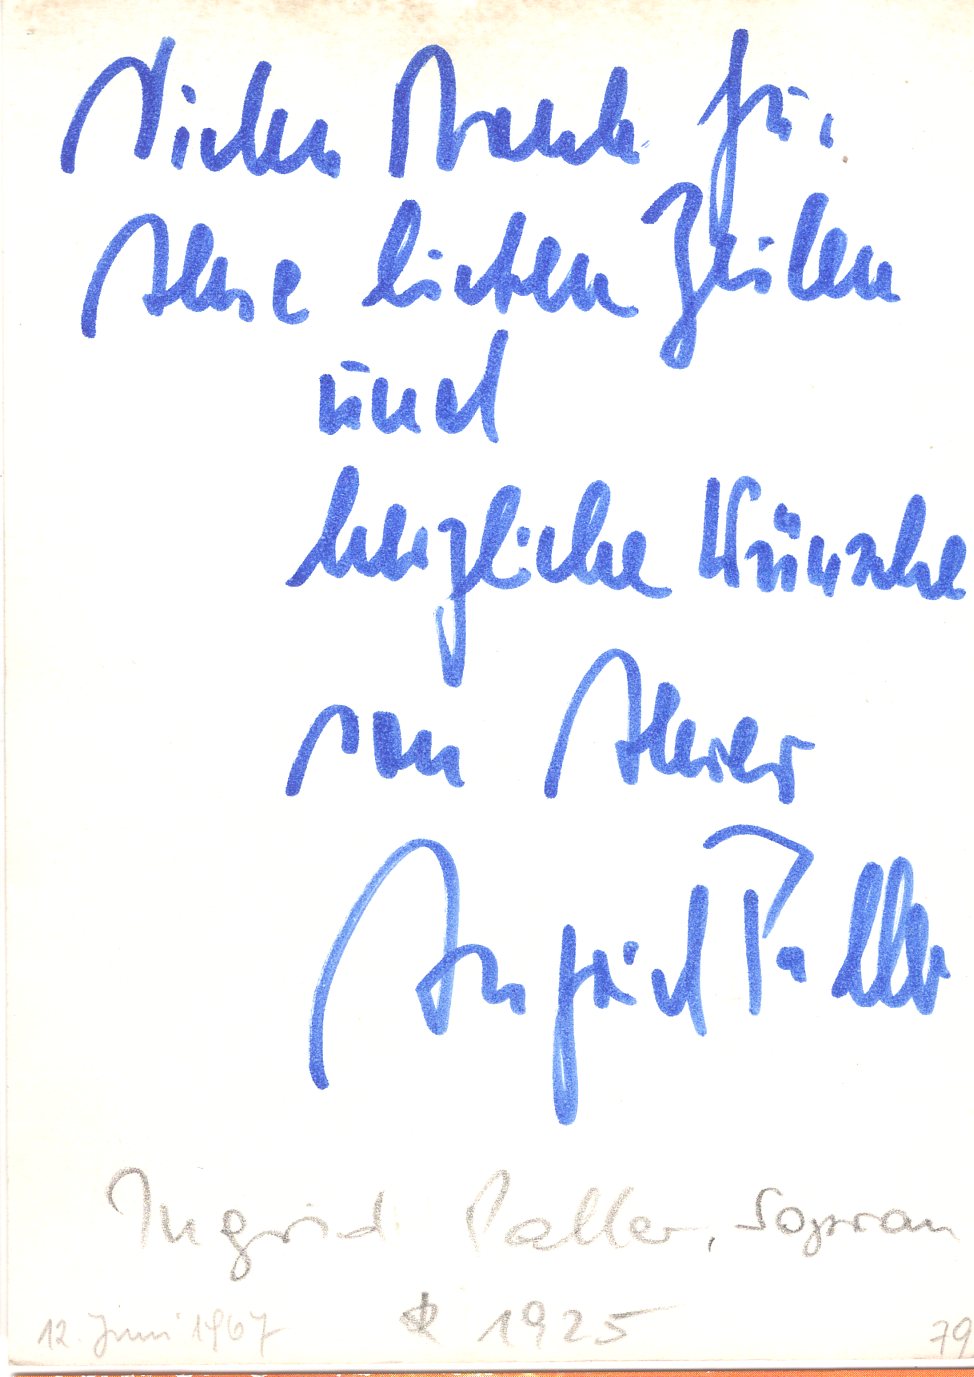 Vielen Dank für
Ihre lieben Zeilen
und
herzliche Wünsche
von Ihrer
Ingrid Paller
Ingrid Paller, Sopran
* 1925
12. Juni 1967
79